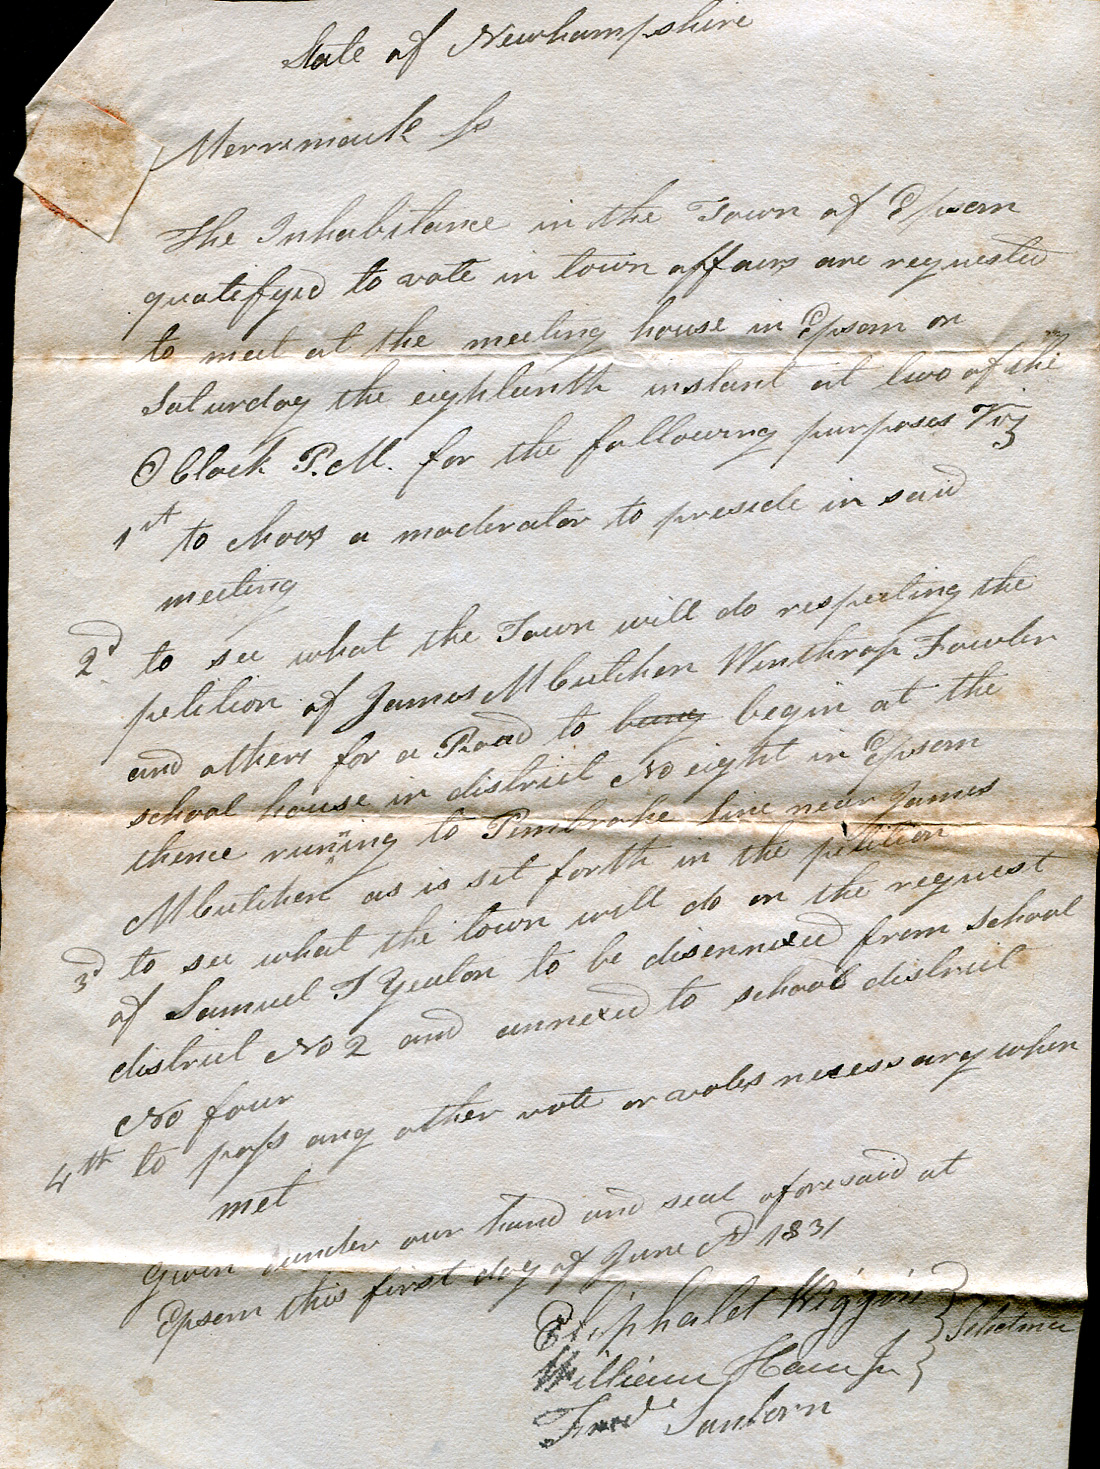 State of Newhampshire
Merrimack ss
The Inhabitance in the Town of Epsom
qualifyed to vote in town affairs are requested
to meet at the meeting house in Epsom on
Saturday the eighteenth instant at two of the
O Clock P.M. for the following purposes Viz
1st to choos a moderator to preside in said
meeting
2d to see what the Town will do respecting the
petition of James McCutchen Winthrop Fowler
and others for a Road to begin at the
school house in district No eight in Epsom
thence runing to Pembroke line near James
McCutchen as is set forth in the petition
3d to see what the town will do on the request
of Samuel T Yeaton to be disennexed from school
district No 2 and annexed to school district
No four
4th to pass any other vote or votes necessary when
met
Given under our hand and seal aforesaid at
Epsom this first day of June AD 1831
Eliphalet Wiggins
William Ham Jr
Sanborn